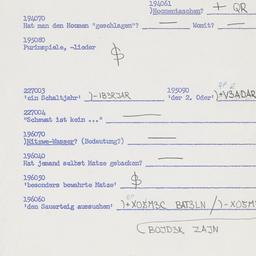 194061
)Hoomentaschen? + QR
194070
Hat man den Hooman "geschlagen"? — Womit? —
195080
Purimspiele, -lieder $
227003 195090
'ein Schaltjahr' )-IB3RJAR 'der 2. Oder' )+V3ADAR
227004
"Schemat ist kein ..." —
196070
)Mitzwe-Wasser? (Bedeutung?) —
196040
Hat jemand selbst Matze gebacken? —
196050
'besonders bewahrte Matze' $
196060
'den Sauerteig aussuchen' )+XO5M3C BAT3LN /)-XO5M
(BOJD3K ZAJN